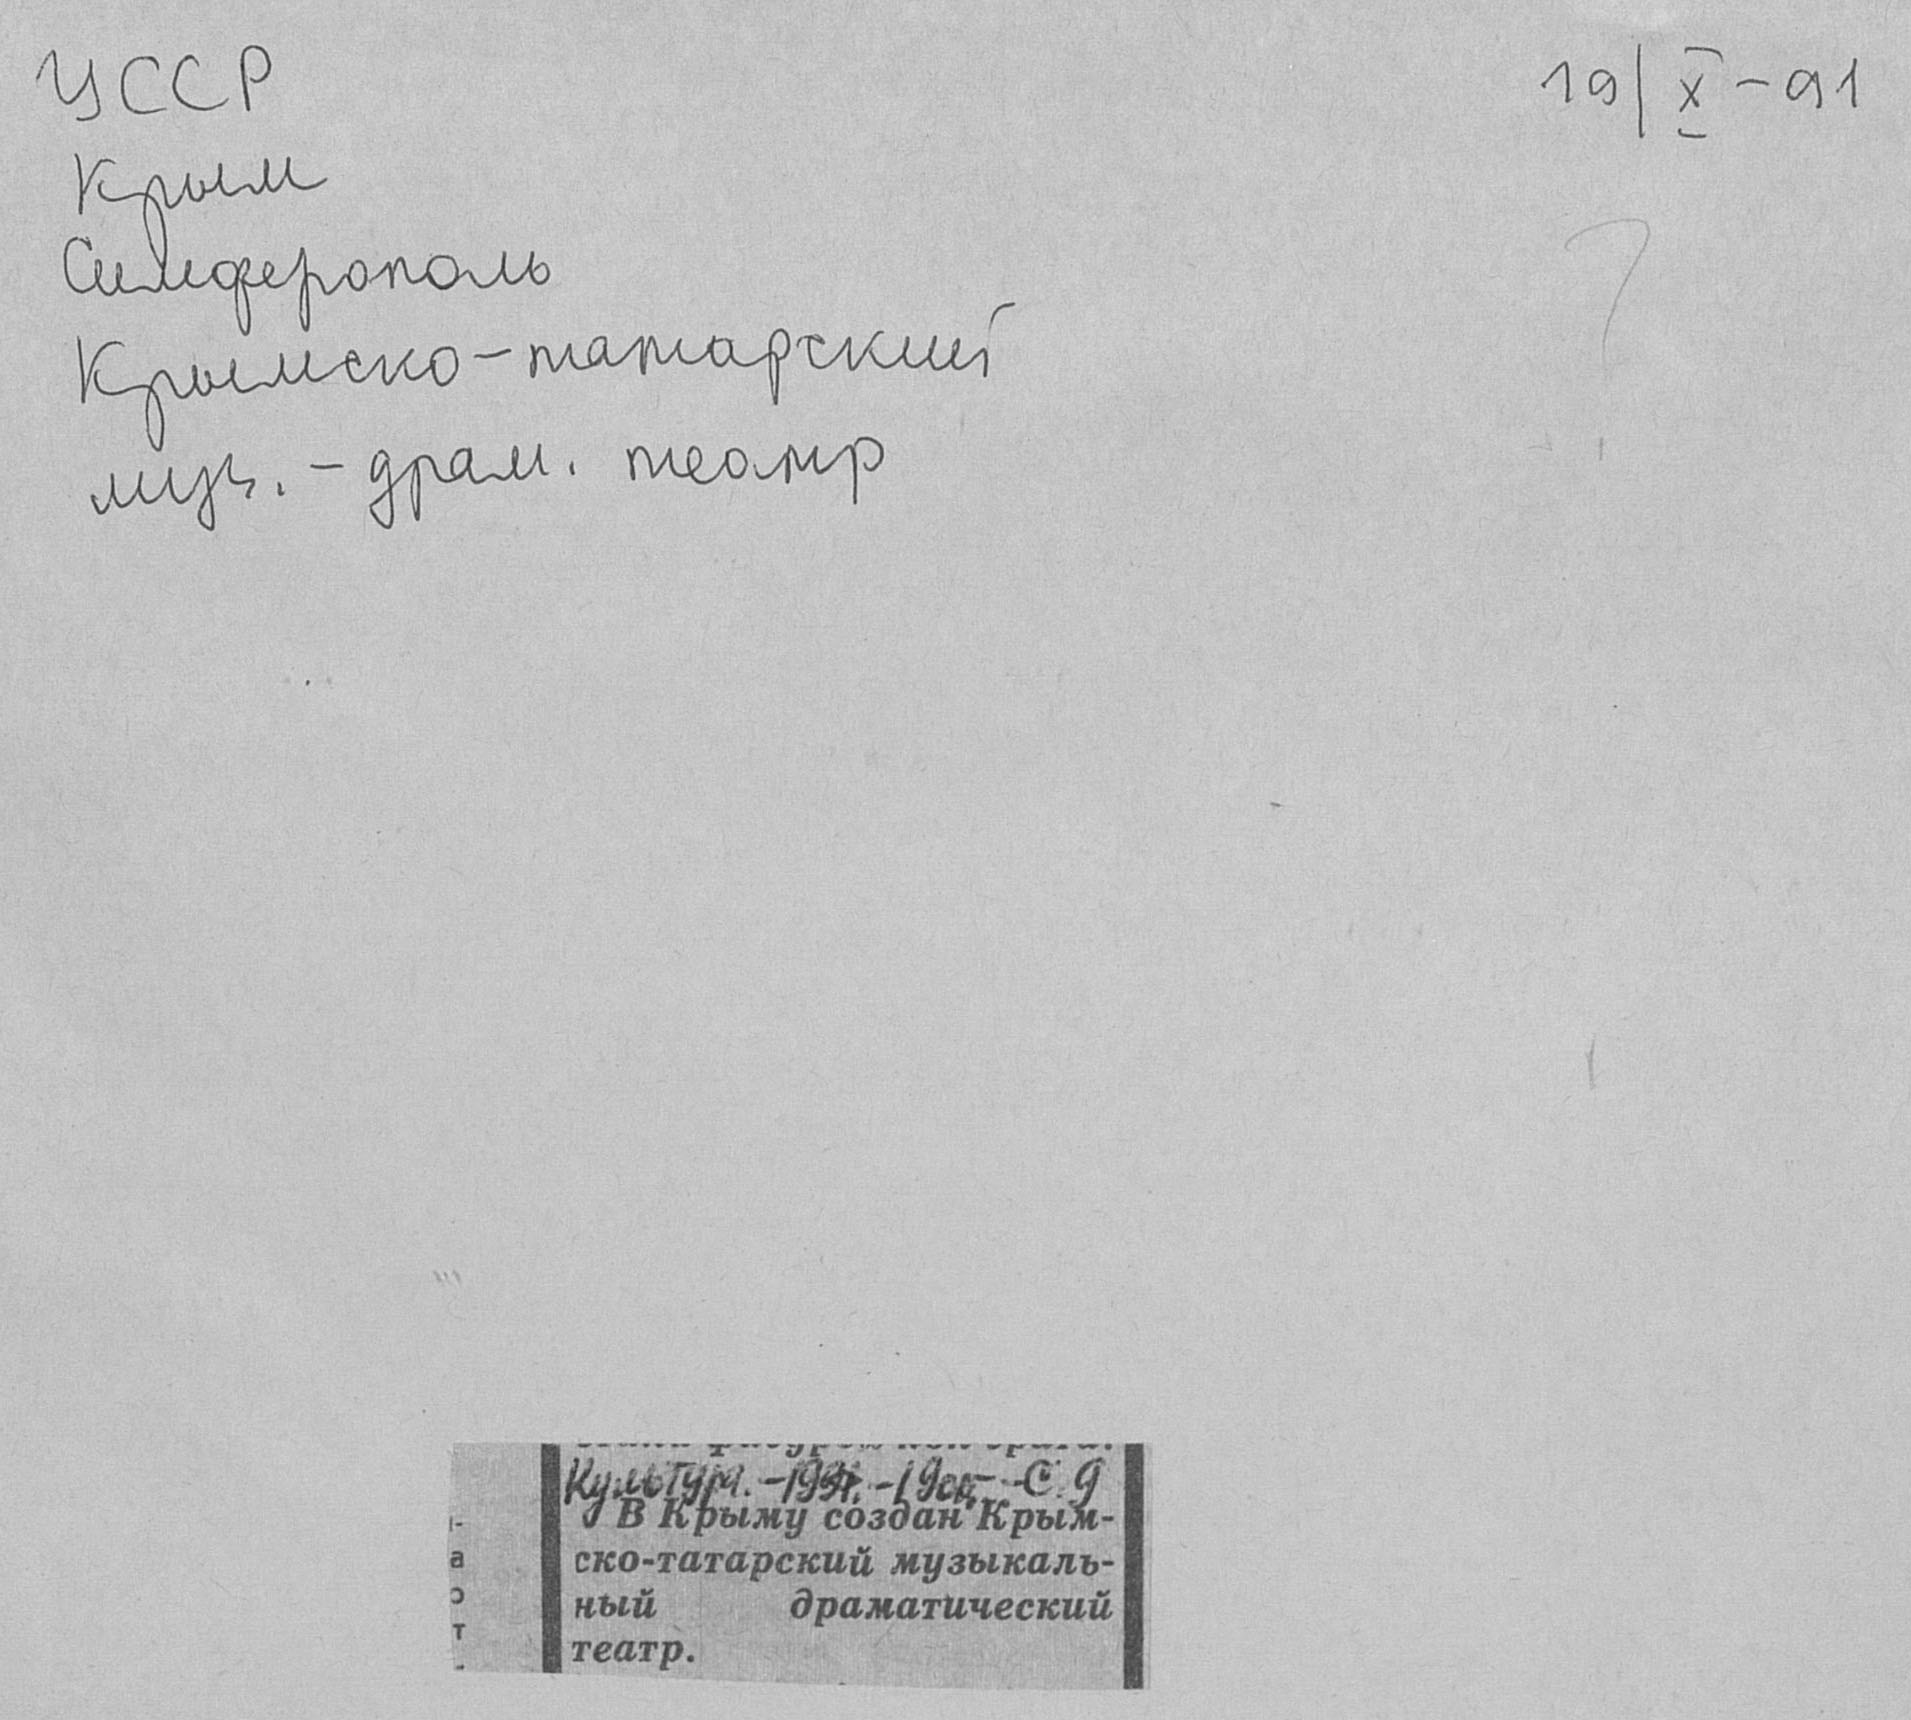 УССР
19/X-91
Крым
Симферополь
?
Крымско-татарский
муз.-драм. театр
Культура. -1991. -19окт. -С. 9
В Крыму создан Крым-
ско-татарский музыкаль-
ный драматический
театр.